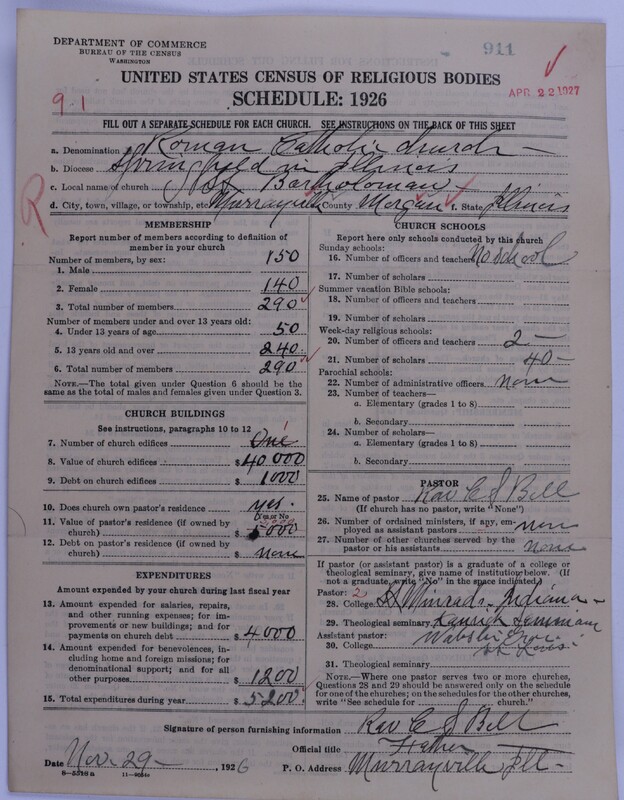 DEPARTMENT OF COMMERCE
BUREAU OF THE CENSUS
WASHINGTON
911
UNITED STATES CENSUS OF RELIGIOUS BODIES
SCHEDULE: 1926
9-1
APR 22 1927
FILL OUT A SEPARATE SCHEDULE FOR EACH CHURCH. SEE INSTRUCTIONS ON THE BACK OF THIS SHEET
a. Denomination Roman Catholic church
b. Diocese Springfield in Illinois
c. Local name of church St. Bartholoman
d. City, town, village, or township, etc. Murrayville County Morgan f. State Illinois
R
MEMBERSHIP
Report number of members according to definition of member in your church
Number of members, by sex:
1. Male 150
2. Female 140
3. Total number of members 290
Number of members under and over 13 years old:
4. Under 13 years of age 50
5. 13 years old and over 240
6. Total number of members 290
NOTE.—The total given under Question 6 should be the same as the total of males and females given under Question 3.
CHURCH BUILDINGS
See instructions, paragraphs 10 to 12
7. Number of church edifices One 1
8. Value of church edifices $ 40000
9. Debt on church edifices $ 1000
10. Does church own pastor's residence yes.
Yes or No
11. Value of pastor's residence (if owned by church) $ 5000
12. Debt on pastor's residence (if owned by church) $ none
EXPENDITURES
Amount expended by your church during last fiscal year
13. Amount expended for salaries, repairs, and other running expenses; for improvements or new buildings; and for payments on church debt $ 4000
14. Amount expended for benevolences, including home and foreign missions; for denominational support; and for all other purposes $ 1200
15. Total expenditures during year $ 5200
CHURCH SCHOOLS
Report here only schools conducted by this church
Sunday schools:
16. Number of officers and teachers No school
17. Number of scholars
Summer vacation Bible schools:
18. Number of officers and teachers
19. Number of scholars
Week-day religious schools:
20. Number of officers and teachers 2
21. Number of scholars 40
Parochial schools:
22. Number of administrative officers none
23. Number of teachers—
a. Elementary (grades 1 to 8)
b. Secondary
24. Number of scholars—
a. Elementary (grades 1 to 8)
b. Secondary
PASTOR
25. Name of pastor Rev C S Bell
(If church has no pastor, write "None")
26. Number of ordained ministers, if any, employed as assistant pastors none
27. Number of other churches served by the pastor or his assistants none
If pastor (or assistant pastor) is a graduate of a college or theological seminary, give name of institution below. (If not a graduate, write "No" in the space indicated)
Pastor: 2
28. College Indiana
29. Theological seminary Kenrick Seminary
Assistant pastor:
30. College St Louis
31. Theological seminary
NOTE.—Where one pastor serves two or more churches, Questions 28 and 29 should be answered only on the schedule for one of the churches; on the schedules for the other churches, write "See schedule for church."
Signature of person furnishing information Rev C S Bell
Official title Father
Date Nov. 29, 1926 P. O. Address Murrayville Ill
8-5518a